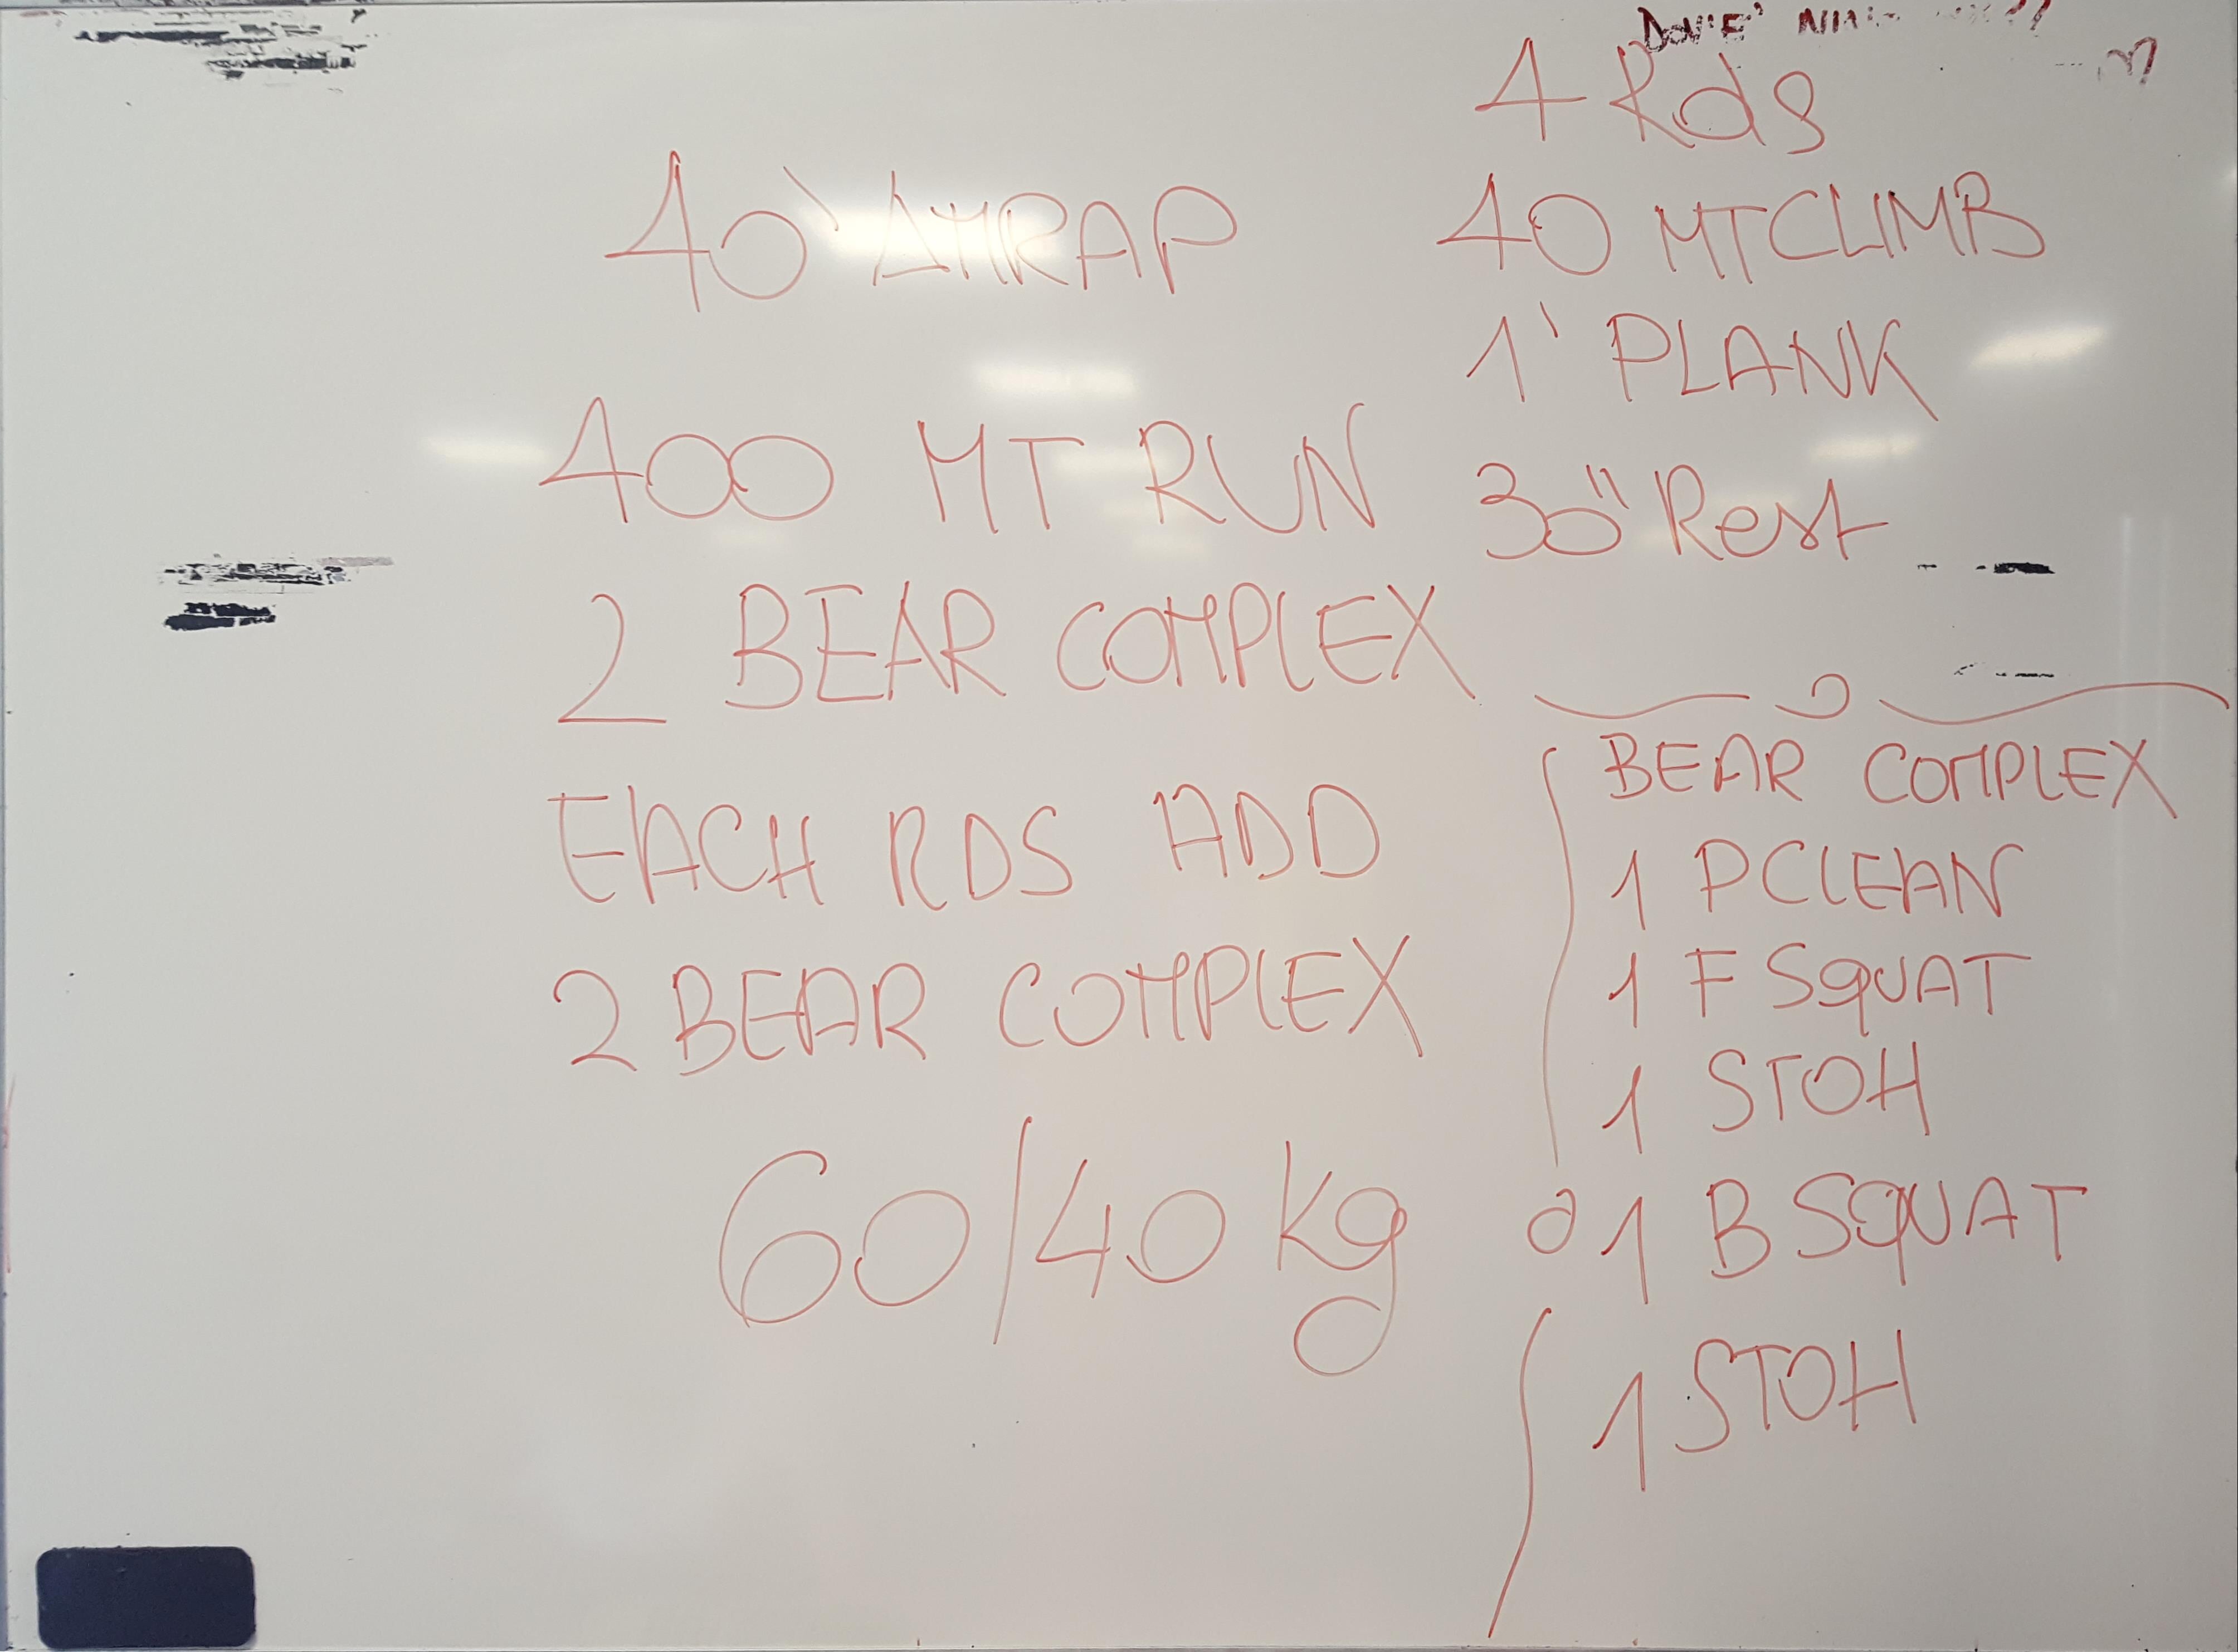 40' AMRAP
400 MT RUN
2 BEAR COMPLEX
EACH RDS ADD
2 BEAR COMPLEX
60/40 kg
DOV'E'
4 Rds
40 MTCLIMB
1' PLANK
30" Rest
BEAR COMPLEX
1 PCLEAN
1 F SQUAT
1 STOH
1 B SQUAT
1 STOH